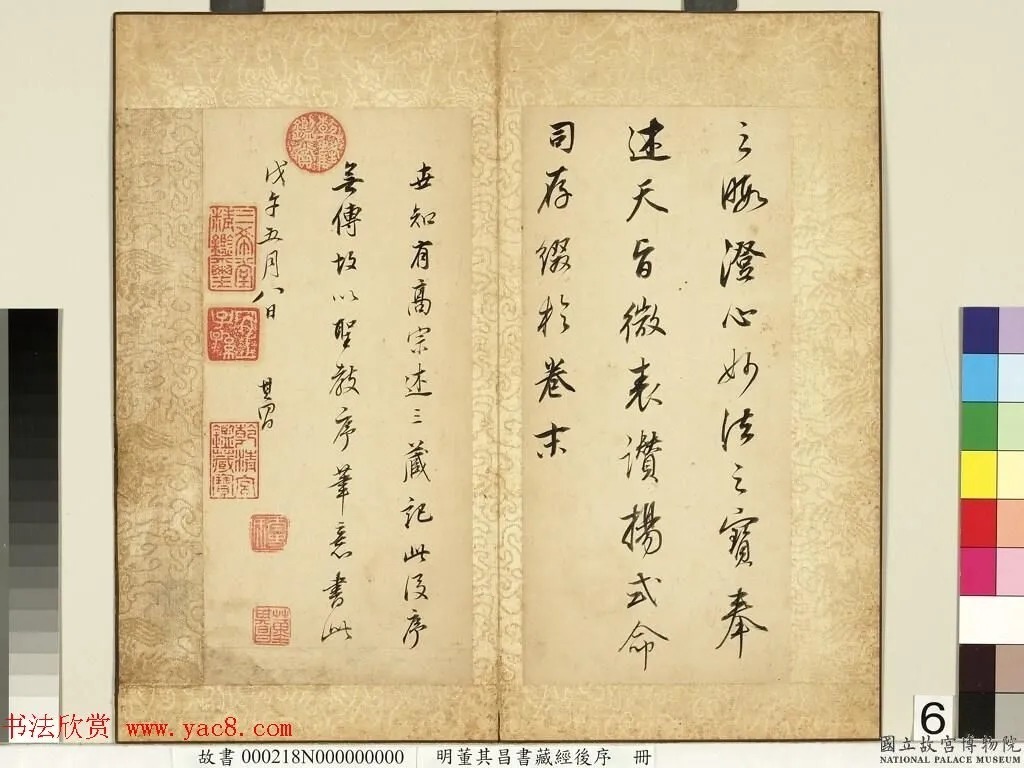 之晦澄心妙法之寶奉
述天旨微表讚揚式命
司存綴於卷末
世知有高宗述三藏記此後序
無傳故以聖教序筆意書此
戊午五月八日
其昌
三希堂精鑑璽
宜子孫
乾清宮鑑藏寶
董其昌
6
书法欣赏 www.yac8.com
故書 000218N000000000 明董其昌書藏經後序 冊
國立故宮博物院
NATIONAL PALACE MUSEUM